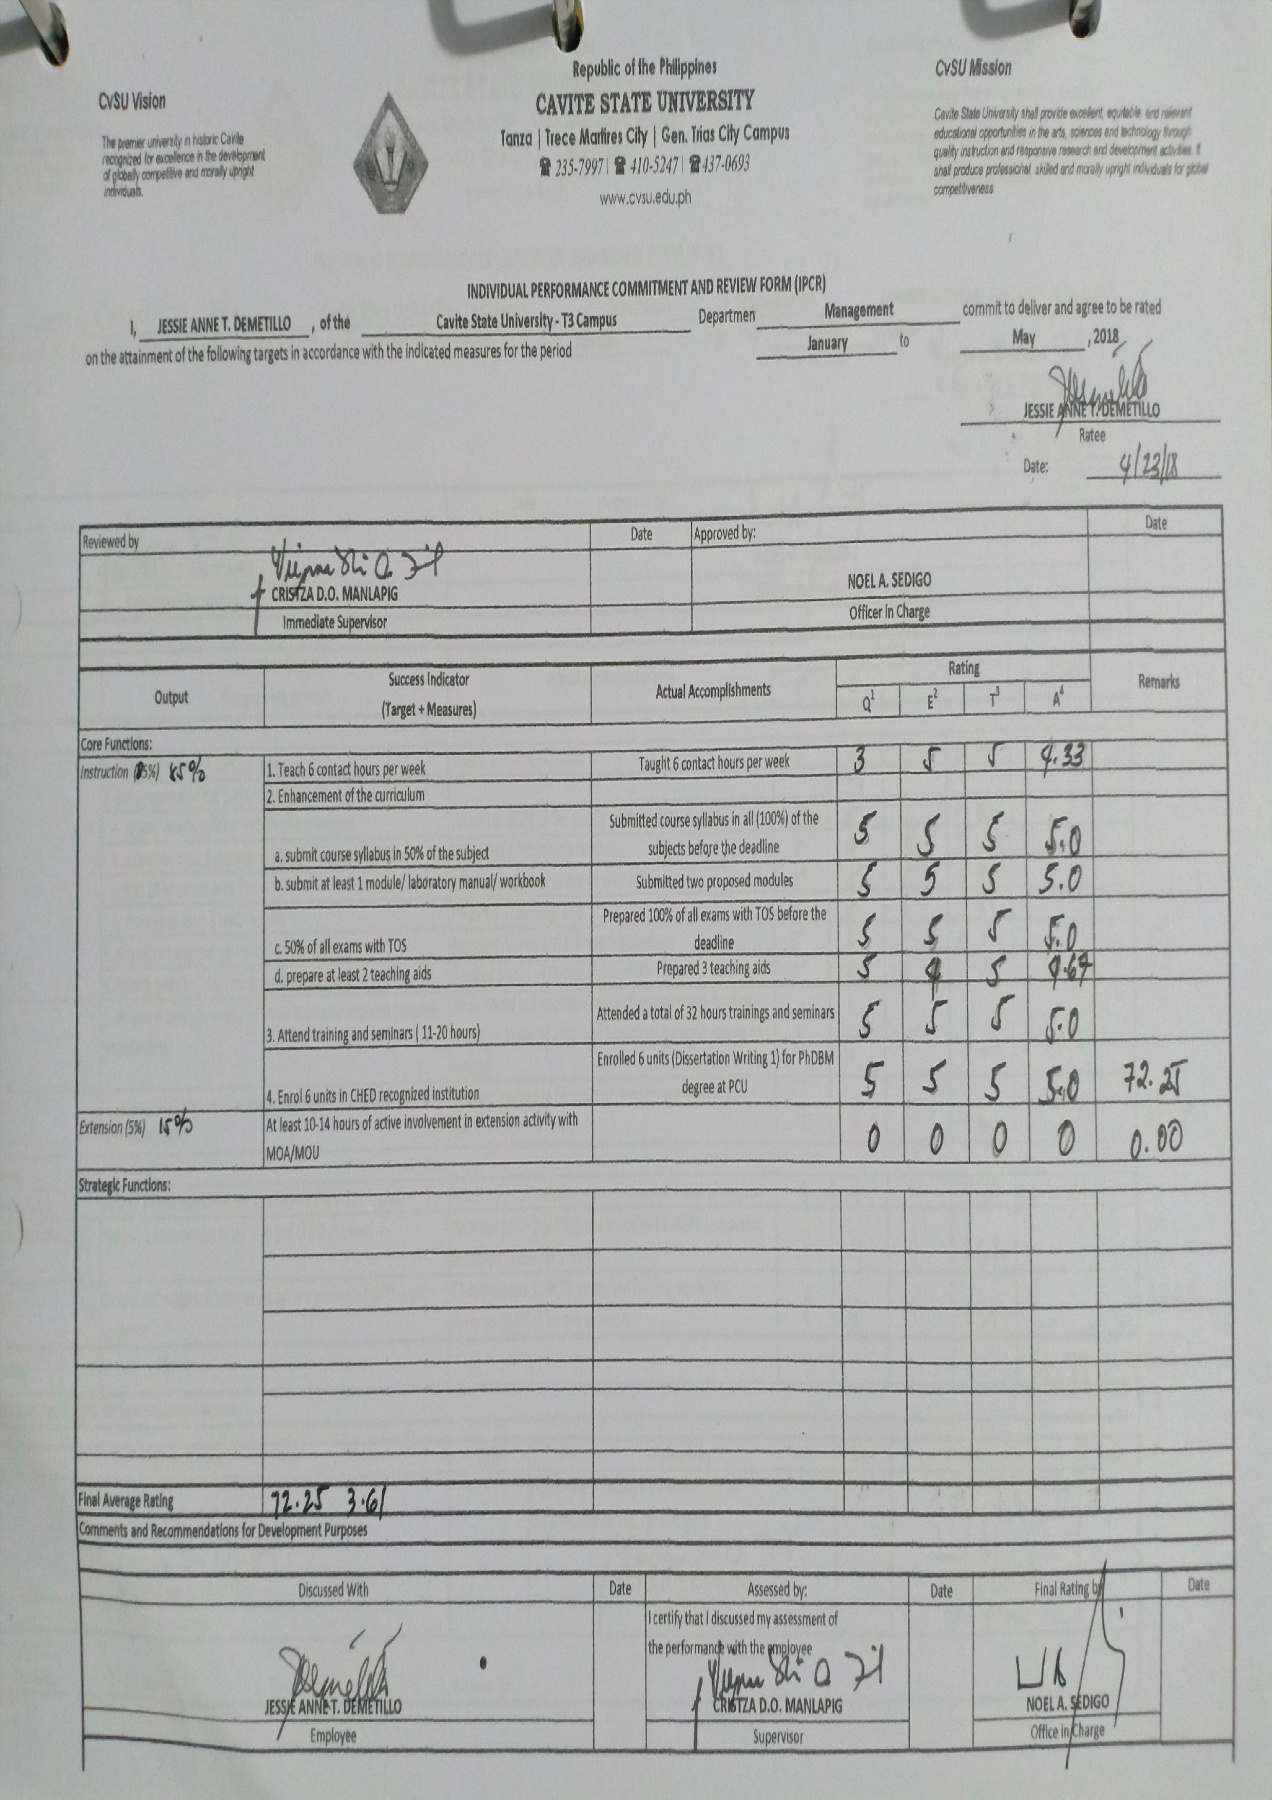 CvSU Vision
The premier university in historic Cavite
recognized for excellence in the development
of globally competitive and morally upright
individuals.
Republic of the Philippines
CAVITE STATE UNIVERSITY
Tanza | Trece Martires City | Gen. Trias City Campus
☎ 235-7997 | ☎ 410-5247 | ☎ 437-0693
www.cvsu.edu.ph
CvSU Mission
Cavite State University shall provide excellent, equitable, and relevant
educational opportunities in the arts, sciences and technology through
quality instruction and responsive research and development activities. It
shall produce professional, skilled and morally upright individuals for global
competitiveness
INDIVIDUAL PERFORMANCE COMMITMENT AND REVIEW FORM (IPCR)
I, JESSIE ANNE T. DEMETILLO , of the Cavite State University - T3 Campus Departmen Management commit to deliver and agree to be rated
on the attainment of the following targets in accordance with the indicated measures for the period January to May , 2018
JESSIE ANNE T. DEMETILLO
Ratee
Date: 4/23/18
Reviewed by Date Approved by: Date
CRISTZA D.O. MANLAPIG NOEL A. SEDIGO
Immediate Supervisor Officer in Charge
Output Success Indicator (Target + Measures) Actual Accomplishments Rating Remarks
Q1 E2 T3 A4
Core Functions:
Instruction 85% 1. Teach 6 contact hours per week Taught 6 contact hours per week 3 5 5 4.33
2. Enhancement of the curriculum
a. submit course syllabus in 50% of the subject Submitted course syllabus in all (100%) of the subjects before the deadline 5 5 5 5.0
b. submit at least 1 module/ laboratory manual/ workbook Submitted two proposed modules 5 5 5 5.0
c. 50% of all exams with TOS Prepared 100% of all exams with TOS before the deadline 5 5 5 5.0
d. prepare at least 2 teaching aids Prepared 3 teaching aids 5 4 5 4.67
3. Attend training and seminars ( 11-20 hours) Attended a total of 32 hours trainings and seminars 5 5 5 5.0
4. Enrol 6 units in CHED recognized institution Enrolled 6 units (Dissertation Writing 1) for PhDBM degree at PCU 5 5 5 5.0 72.25
Extension (5%) 15% At least 10-14 hours of active involvement in extension activity with MOA/MOU 0 0 0 0 0.00
Strategic Functions:
Final Average Rating 72.25 3.61
Comments and Recommendations for Development Purposes
Discussed With Date Assessed by: Date Final Rating by Date
I certify that I discussed my assessment of
the performance with the employee
JESSIE ANNE T. DEMETILLO CRISTZA D.O. MANLAPIG NOEL A. SEDIGO
Employee Supervisor Office in Charge